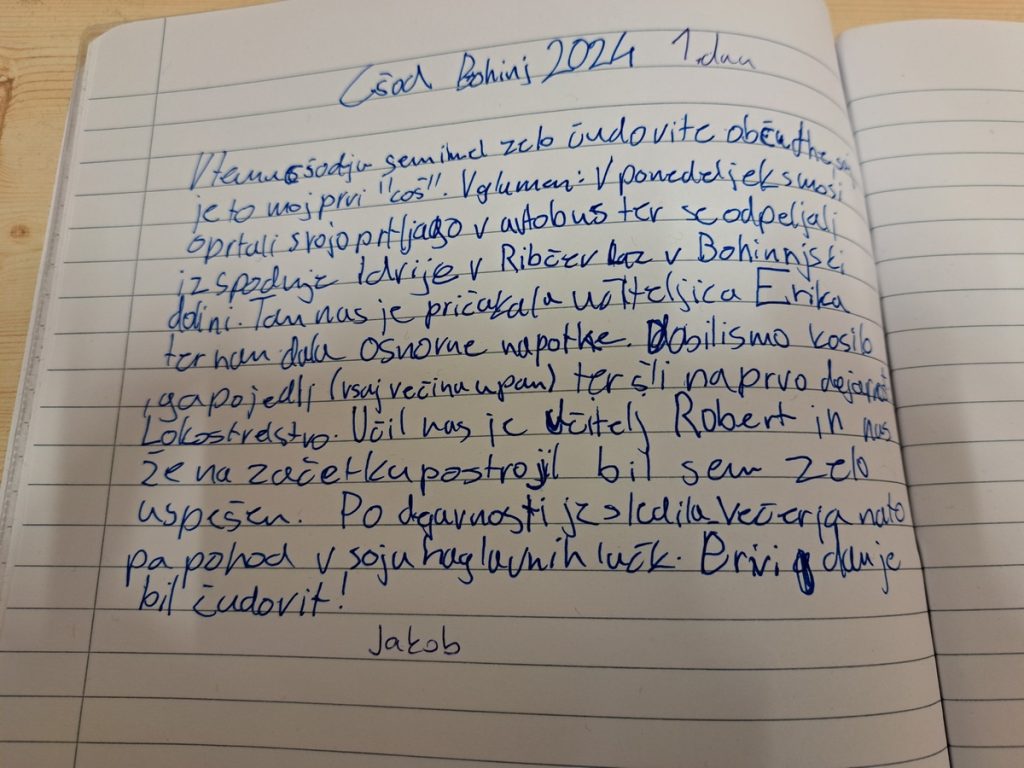 Čšod Bohinj 2024 1. dan
V temu čšodju sem imel zelo čudovite občutke
je to moj prvi "coš". V glumen: V ponedeljek smo si
oprtali svojo prtljago v avtobus ter se odpeljali
iz spodnje Idrije v Ribčev Laz v Bohinnjski
dolini. Tam nas je pričakala učiteljica Erika
ter nam dala osnovne napotke. Dobili smo kosilo
, ga pojedli (vsaj večina upam) ter šli na prvo dejavnost
Lokostrelstvo. Učil nas je učitelj Robert in nas
že na začetku postrojil bil sem zelo
uspešen. Po dejavnosti je sledila večerja nato
pa pohod v soju naglavnih lučk. Prvi dan je
bil čudovit!
Jakob